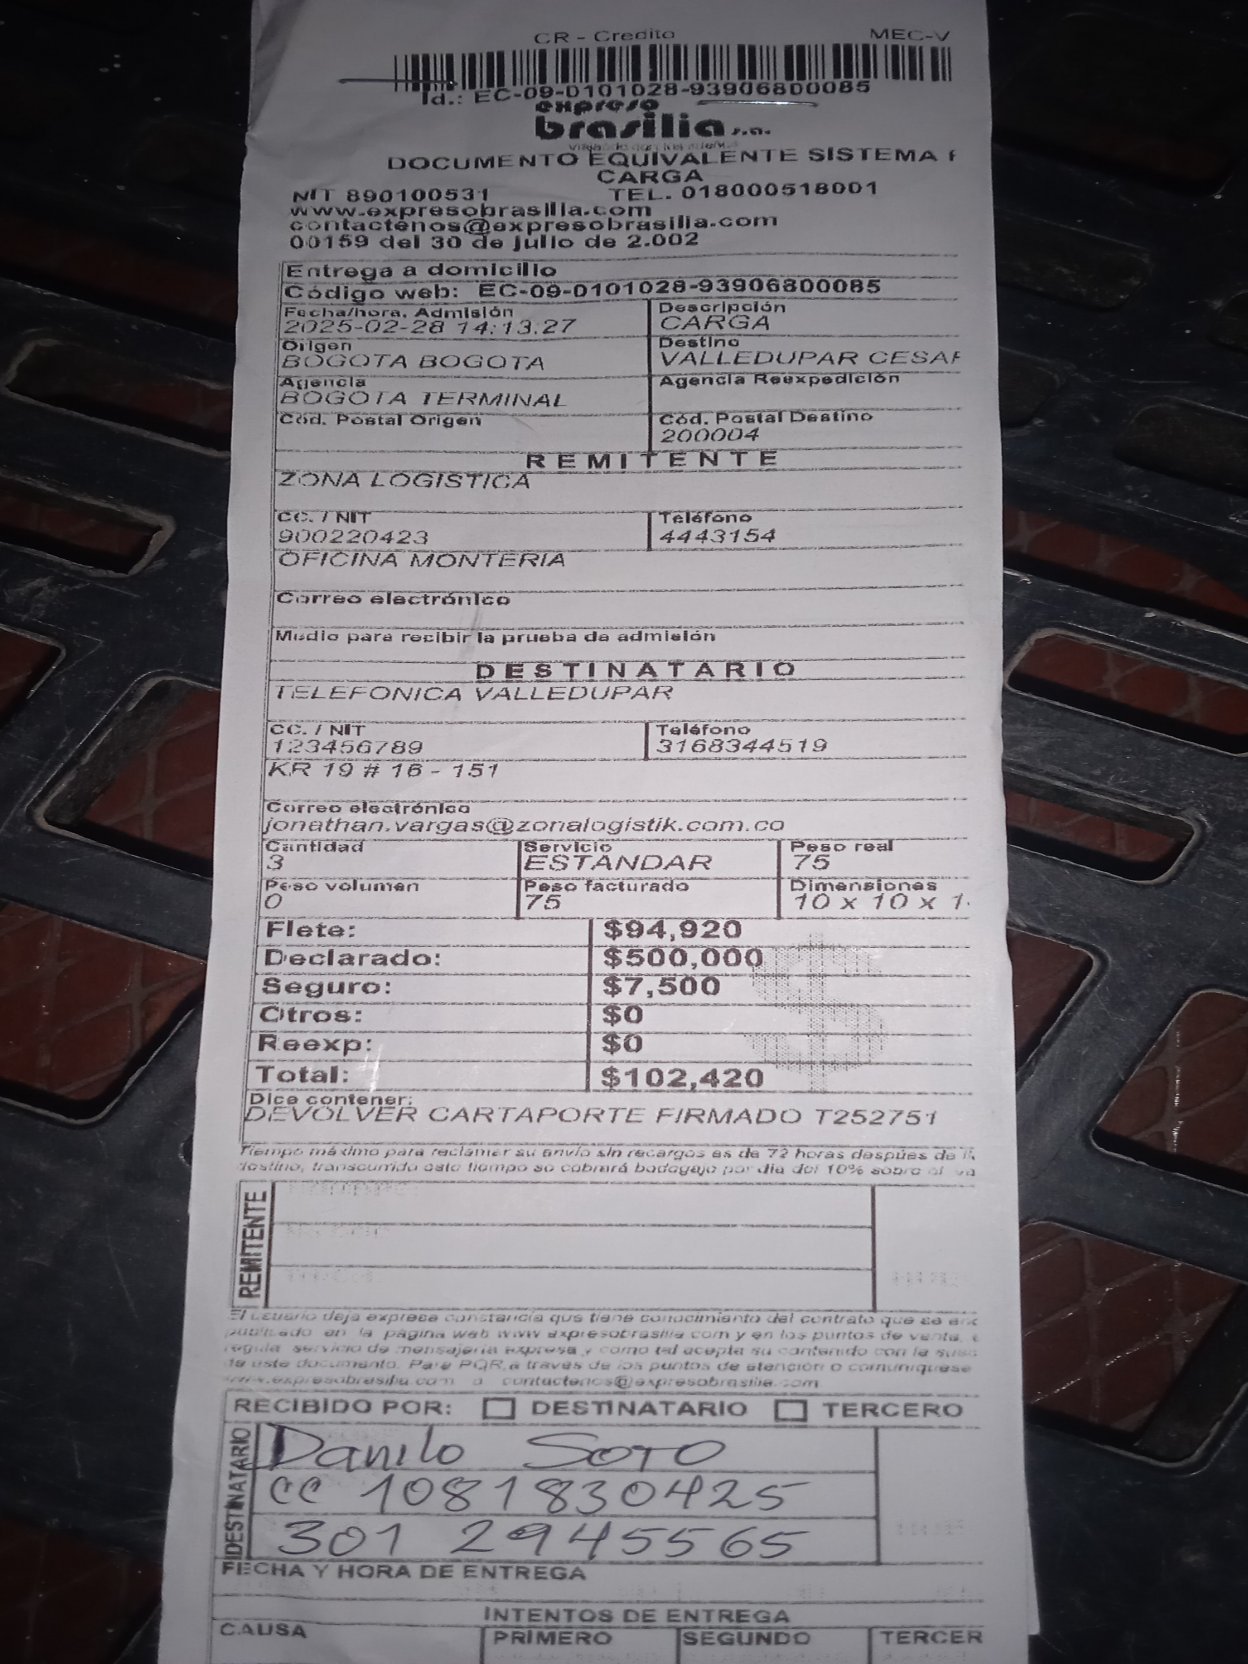 CR - Credito MEC-V
Id.: EC-09-0101028-93906800085
expreso
brasilia s.a.
DOCUMENTO EQUIVALENTE SISTEMA
CARGA
NIT 890100531 TEL. 018000518001
www.expresobrasilia.com
contactenos@expresobrasilia.com
00159 del 30 de julio de 2.002
Entrega a domicilio
Código web: EC-09-0101028-93906800085
Fecha/hora. Admisión Descripción
2025-02-28 14:13:27 CARGA
Origen Destino
BOGOTA BOGOTA VALLEDUPAR CESAR
Agencia Agencia Reexpedición
BOGOTA TERMINAL
Cód. Postal Origen Cód. Postal Destino
200004
REMITENTE
ZONA LOGISTICA
CC. / NIT Teléfono
900220423 4443154
OFICINA MONTERIA
Correo electrónico
Medio para recibir la prueba de admisión
DESTINATARIO
TELEFONICA VALLEDUPAR
CC. / NIT Teléfono
123456789 3168344519
KR 19 # 16 - 151
Correo electrónico
jonathan.vargas@zonalogistik.com.co
Cantidad Servicio Peso real
3 ESTANDAR 75
Peso volumen Peso facturado Dimensiones
0 75 10 x 10 x 1
Flete: $94,920
Declarado: $500,000
Seguro: $7,500
Otros: $0
Reexp: $0
Total: $102,420
Dice contener:
DEVOLVER CARTAPORTE FIRMADO T252751
Tiempo máximo para reclamar su envío sin recargos es de 72 horas despúes de
destino, transcurrido este tiempo se cobrará bodegaje por día del 10% sobre el
REMITENTE
El usuario deja expresa constancia que tiene conocimiento del contrato que se
publicado en la página web www.expresobrasilia.com y en los puntos de venta,
regula servicio de mensajería expresa y como tal acepta su contenido con la
de este documento. Para PQR, a través de los puntos de atención o comuniquese
www.expresobrasilia.com o contactenos@expresobrasilia.com
RECIBIDO POR: DESTINATARIO TERCERO
DESTINATARIO
Danilo Soto
CC 1081830425
301 2945565
FECHA Y HORA DE ENTREGA
INTENTOS DE ENTREGA
CAUSA PRIMERO SEGUNDO TERCER